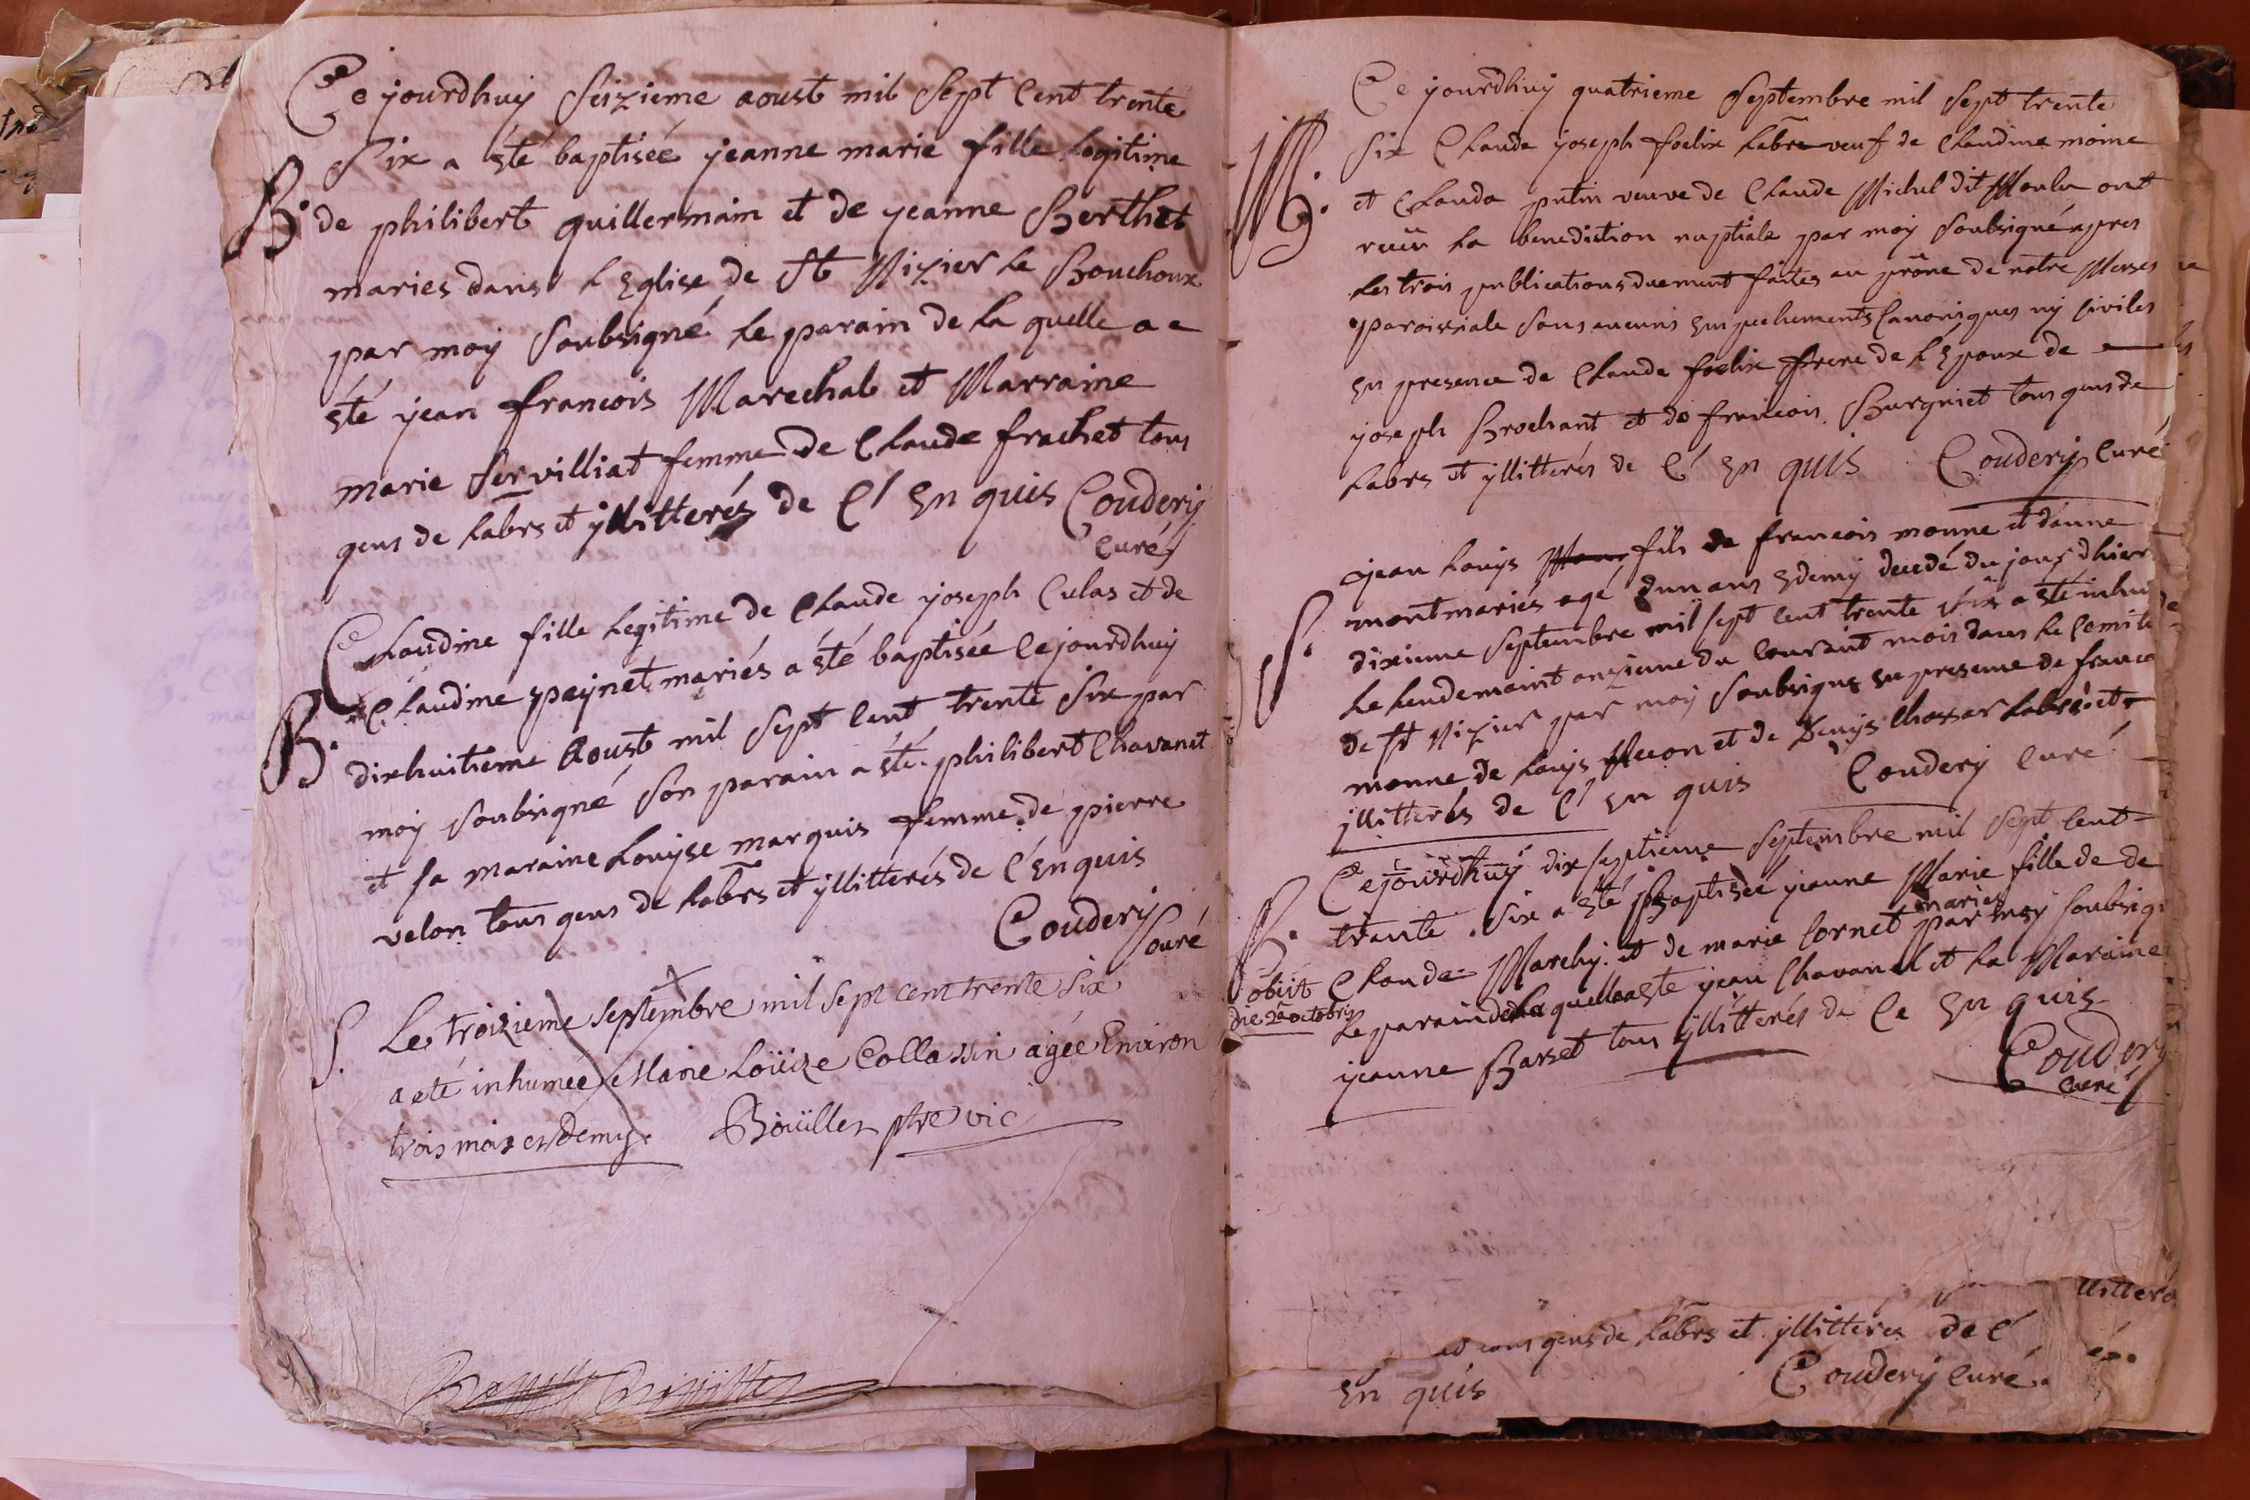 Ce yourdhuy seizieme aoust mil sept Cent trente
six a été baptisée yeanne marie fille Legitime
B. de philibert guillermain et de yeanne Berthet
maries dans L Eglise de St Nizier Le Bouchoux
par moy soubsigné Le parain de La quelle a
été yean francois Marechal et Marraine
marie servilliat femme de Claude frachet tous
gens de Labrs et yllitterés de Cé En quis Coudery
Curé
Claudine fille Legitime de Claude yoseph Culas et de
Claudine peynet mariés a été baptisée Cejourdhuy
B. dixhuitieme Aoust mil sept Cent trente six par
moy soubsigné son parain a été philibert Chavanet
et sa maraine Louyse marquis femme de pierre
velon tous gens de Labrs et yllitterés de Cé En quis
Coudery
Curé
S. Le troizieme septembre mil sept cent trente six
a eté inhumée Marie Loüize Collassin agée Environ
trois mois et demy. Boüiller ptre vic
Ce yourdhuy quatrieme septembre mil sept trente
M. six Claude yoseph foelix Labr veuf de Claudine moine
et Clauda putin veuve de Claude Michel dit Moulu ont
reçu La benediction nuptiale par moy soubsigné apres
Les trois publications duement faites au prône de nôtre Messe
paroissiale sans aucuns Empechements Canoniques ny siviles
En presence de Claude foelix frere de L Epoux de
yoseph Brochant et de francois Burgniet tous gens de
Labrs et yllitterés de Cé En quis Coudery Curé
yean Louys fils de francois monne et danne
mont mariés agé dun ans Edemy decedé du jour dhier
S. dixieme septembre mil sept Cent trente six a été inhu
Le Lendemaint onzieme du Courant mois dans Le Cemite
de St Nizier par moy soubsigné En presence de franco
monne de Louys Mecon et de Denys Chossar Labrs et
yllitterés de Cé En quis Coudery Curé
Cejourdhuy dix septieme septembre mil sept Cent
B. trante six a été Baptisée yeanne Marie fille de de
Claude Marchy et de marie Cornet maries par moy soubsig
obiit
die 2a octobris
Le parain de La quelle a esté yean Chavanel et La Maraine
yeanne Barset tous yllitterés de Ce En quis
Coudery
Curé
llitteré
tous gens de Labrs et yllitteres de Cé
En quis Coudery Curé.